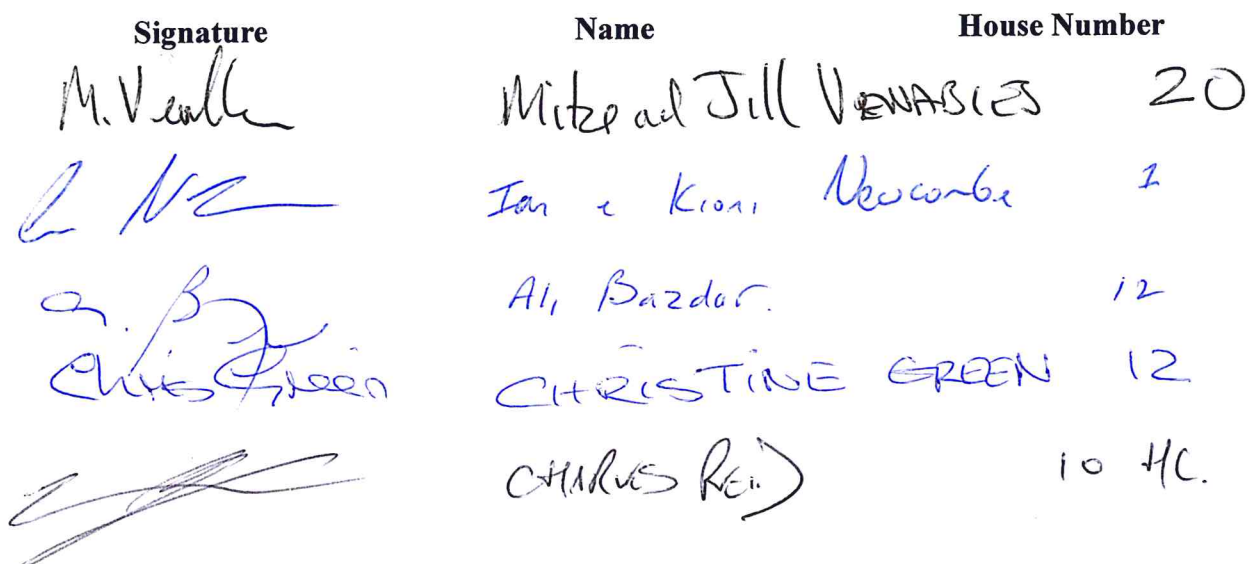 Signature Name House Number
M. Mike and Jill VENABLES 20
Ian & Newcombe 1
Ali Bazdar. 12
Chris Green CHRISTINE GREEN 12
CHARLES REID 10 HC.